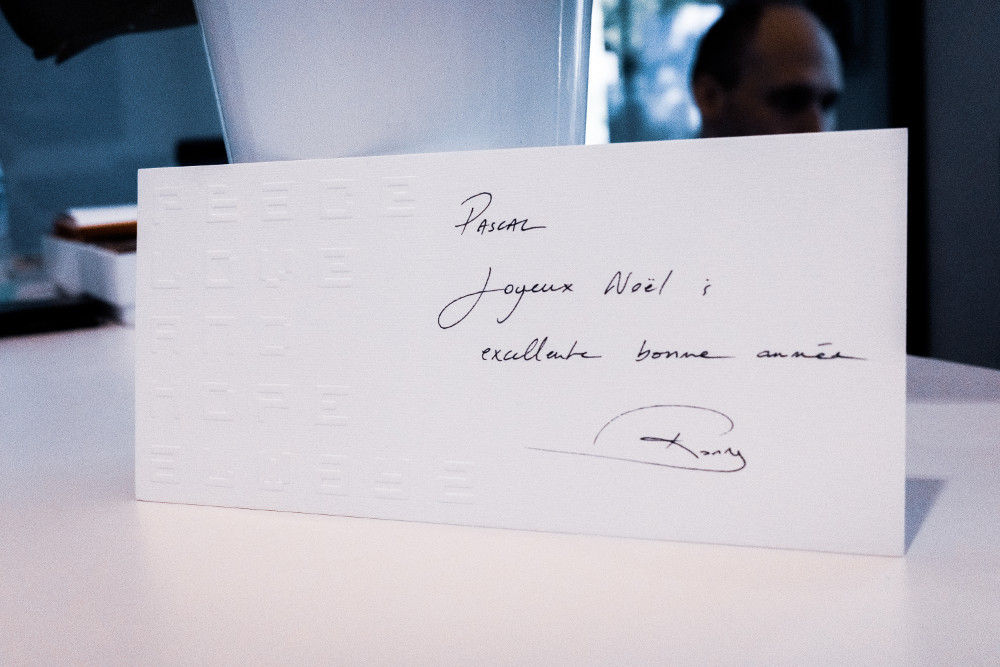 PEACE
LOVE
AND
HOPE
ALWAYS
PASCAL
Joyeux Noël &
excellente bonne année